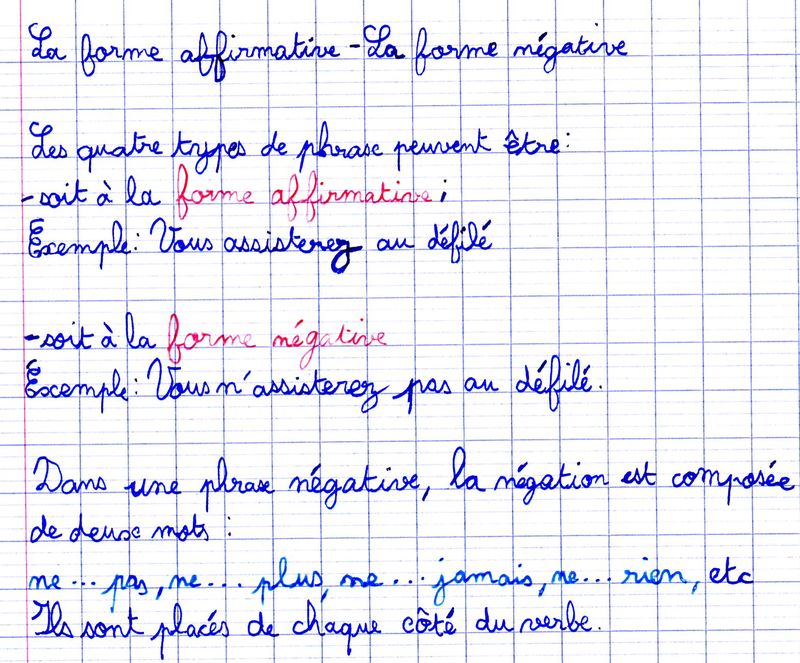 La forme affirmative - La forme négative
Les quatre types de phrase peuvent être :
- soit à la forme affirmative ;
Exemple : Vous assisterez au défilé
- soit à la forme négative
Exemple : Vous n'assisterez pas au défilé.
Dans une phrase négative, la négation est composée
de deux mots :
ne ... pas, ne ... plus, ne ... jamais, ne ... rien, etc
Ils sont placés de chaque côté du verbe.